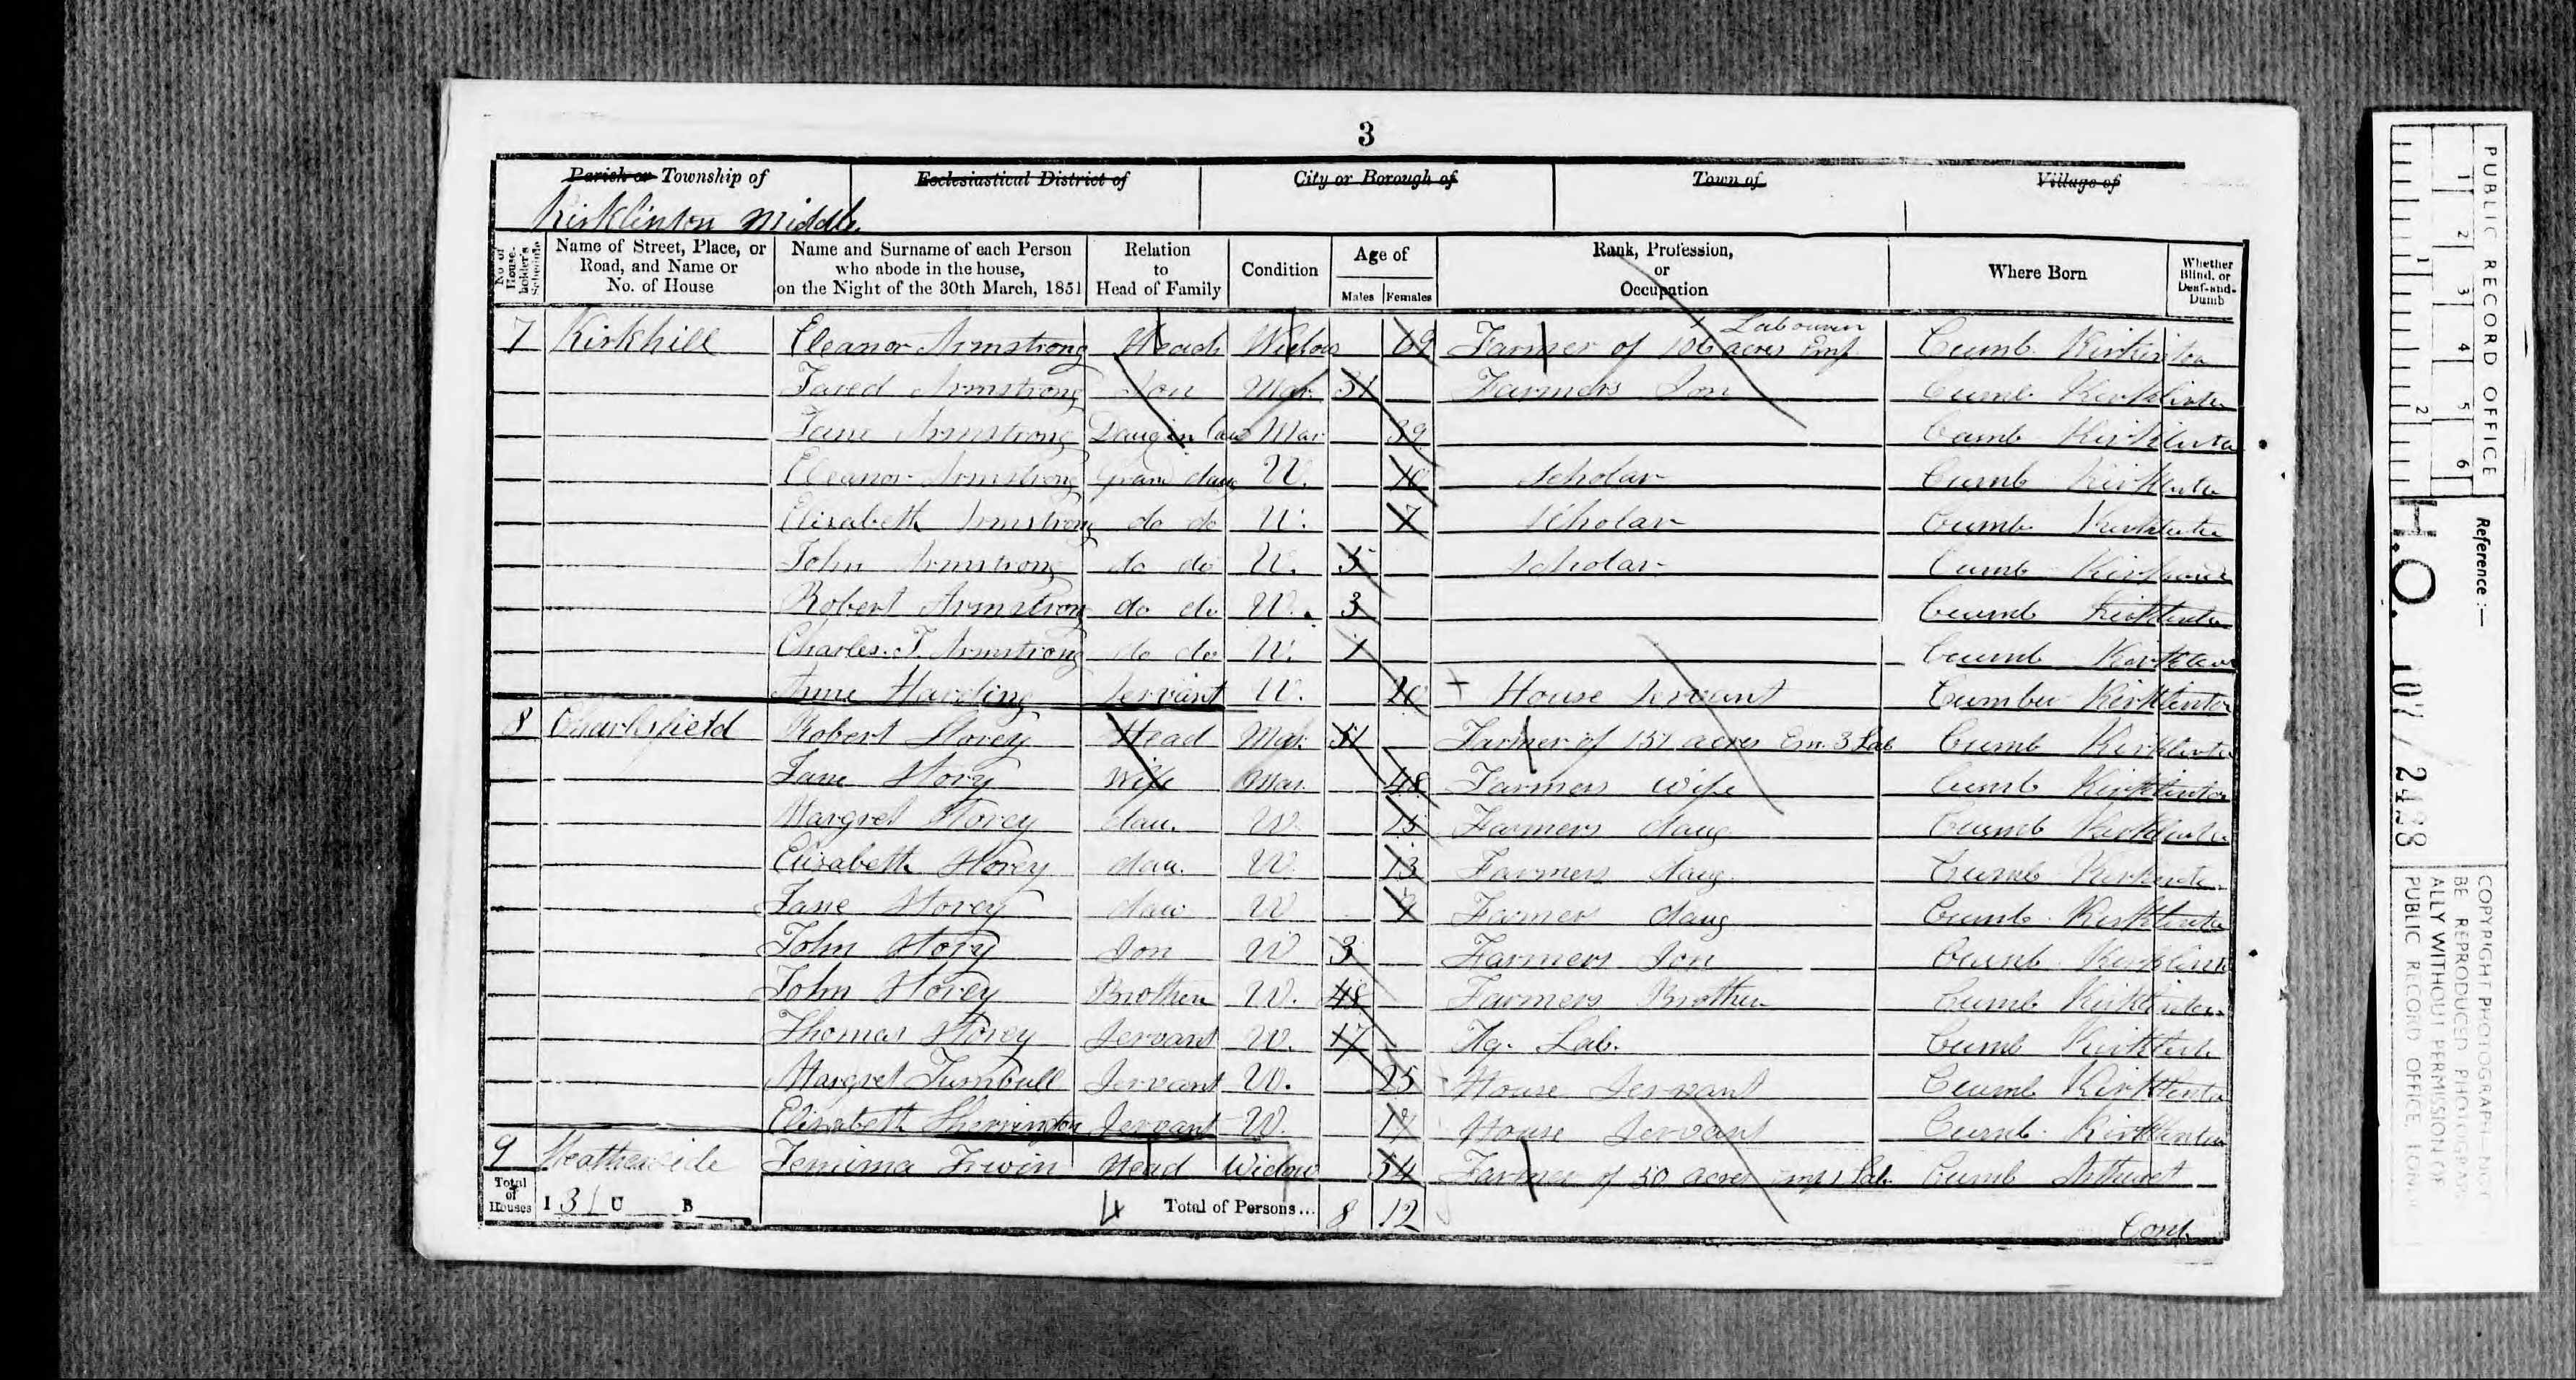 3
Parish or Township of Ecclesiastical District of City or Borough of Town of Village of
Kirklinton Middle
No. of House-holder's Schedule Name of Street, Place, or Road, and Name or No. of House Name and Surname of each Person who abode in the house, on the Night of the 30th March, 1851 Relation to Head of Family Condition Age of Males Females Rank, Profession, or Occupation Where Born Whether Blind, or Deaf-and-Dumb
Labourer
7 Kirkhill Eleanor Armstrong Head Widow 69 Farmer of 106 acres Emp Cumb Kirklinton
Jared Armstrong Son Mar 31 Farmers Son Cumb Kirklinton
Jane Armstrong Daug in law Mar 39 Cumb Kirklinton
Eleanor Armstrong Grand daug U. 10 Scholar Cumb Kirklinton
Elisabeth Armstrong do do U. 7 Scholar Cumb Kirklinton
John Armstrong do do U. 5 Scholar Cumb
Robert Armstrong do do U. 3 Cumb Kirklinton
Charles. T. Armstrong do do U. 1 Cumb Kirklinton
Anne Harding Servant U. 20 House Servant Cumber Kirklinton
8 Robert Storey Head Mar. 51 Farmer of 151 acres Em. 3 Lab Cumb Kirklinton
Jane Story Wife Mar. 48 Farmers Wife Cumb Kirklinton
Margret Storey dau. U 15 Farmers daug Cumb Kirklinton
Elisabeth Storey dau. U 13 Farmers daug Cumb Kirklinton
Jane Storey dau U 7 Farmers daug Cumb Kirklinton
John Story Son U 3 Farmers Son Cumb Kirklinton
John Storey Brother U. 48 Farmers Brother Cumb Kirklinton
Thomas Storey Servant U. 17 Ag. Lab. Cumb Kirklinton
Margret Turnbull Servant U. 25 House Servant Cumb Kirklinton
Elisabeth Servant U. House Servant Cumb Kirklinton
9 Heatherside Jemima Irwin Head Widow 54 Farmer of 50 acres emp 1 Lab Cumb Arthuret
Total of Houses I 3 U B 4 Total of Persons... 8 12
Cond.
PUBLIC RECORD OFFICE
1 2 3 4 5 6
1 2
Reference :-
H.O. 107 / 2433
COPYRIGHT PHOTOGRAPH—NOT
BE REPRODUCED PHOTOGRAPHIC
ALLY WITHOUT PERMISSION OF
PUBLIC RECORD OFFICE,